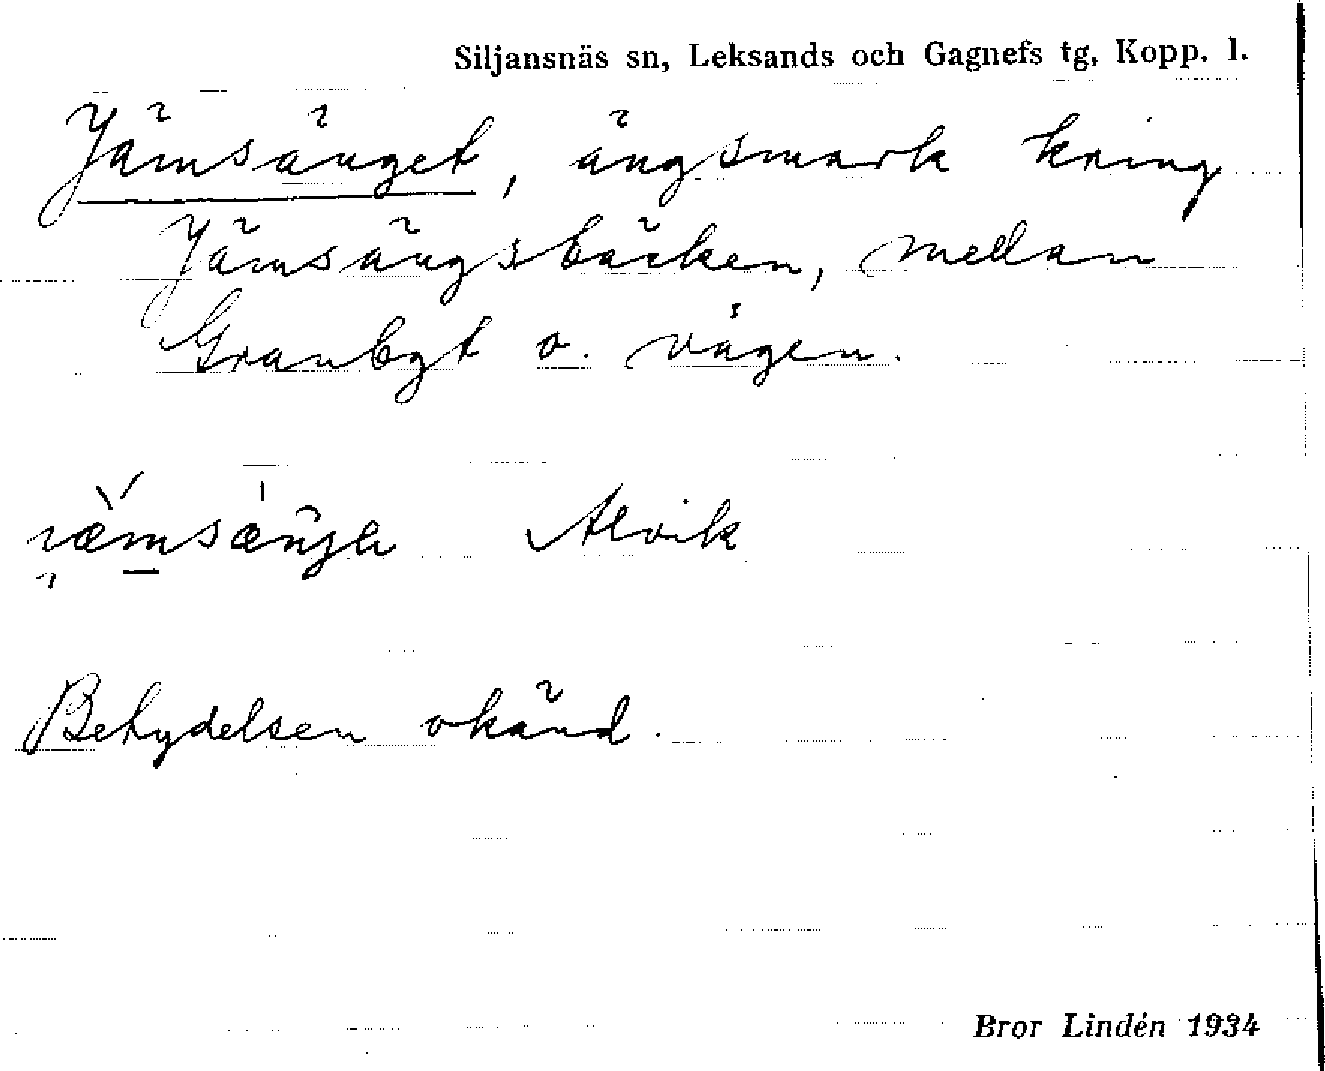 Siljansnäs sn, Leksands och Gagnefs tg, Kopp. l.
Jämsänget, ängsmark kring
Jämsängsbäcken, mellan
Granbyt o. vägen.
Alvik
Betydelsen okänd.
Bror Lindén 1934